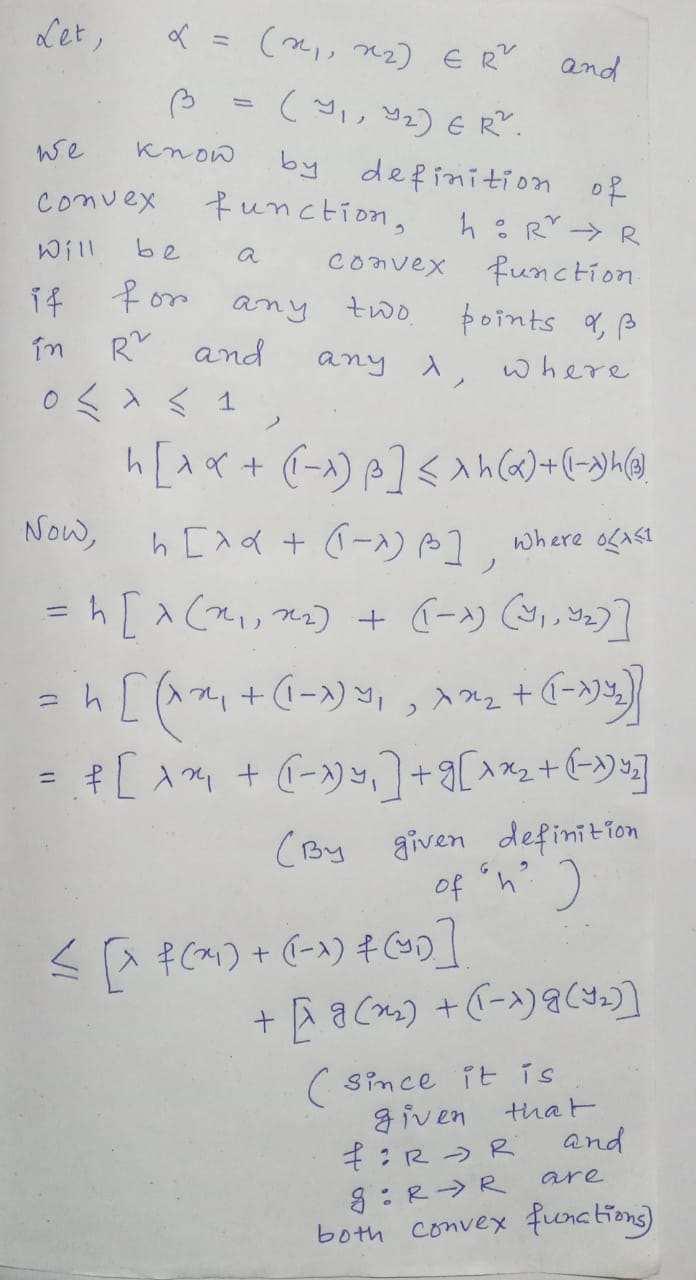 Let, α = (x₁, x₂) ∈ R² and
β = (y₁, y₂) ∈ R².
We know by definition of
convex function, h : R² → R
will be a convex function
if for any two points α, β
in R² and any λ, where
0 ≤ λ ≤ 1,
h[λα + (1-λ)β] ≤ λh(α)+(1-λ)h(β)
Now, h[λα + (1-λ)β], where 0≤λ≤1
= h[λ(x₁, x₂) + (1-λ)(y₁, y₂)]
= h[(λx₁ + (1-λ)y₁, λx₂ + (1-λ)y₂)]
= f[λx₁ + (1-λ)y₁] + g[λx₂ + (1-λ)y₂]
(By given definition
of 'h')
≤ [λ f(x₁) + (1-λ) f(y₁)]
+ [λ g(x₂) + (1-λ) g(y₂)]
(since it is
given that
f : R → R and
g : R → R are
both convex functions)